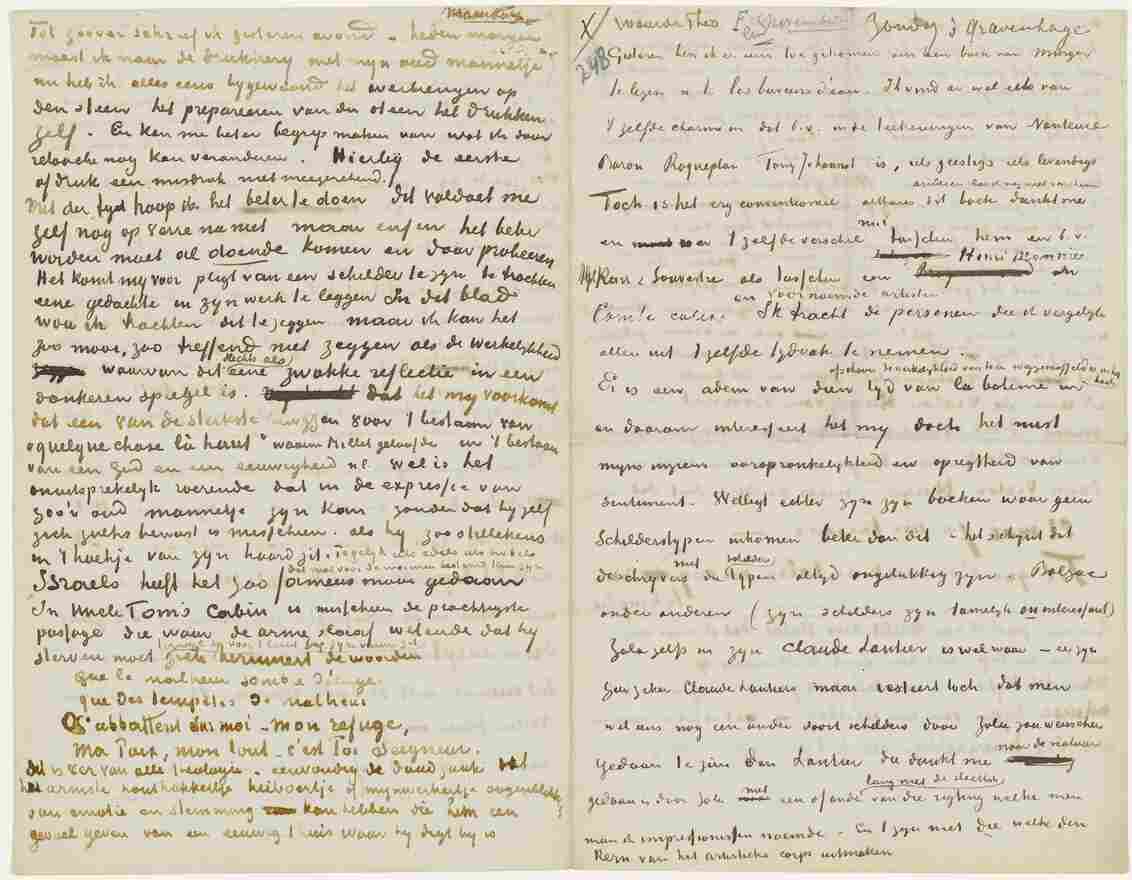 maandag
Tot zoover schreef ik gisteren avond - heden morgen
moest ik naar de drukkerij met mijn oud mannetje
nu heb ik alles eens bijgewoond het overbrengen op
den steen het prepareeren van den steen het drukken
zelf. En kan me beter begrip maken van wat ik door
retouche nog kan veranderen. Hierbij de eerste
afdruk een misdruk niet meegerekend.
Met der tijd hoop ik het beter te doen dit voldoet me
zelf nog op verre na niet maar enfin het beter
worden moet al doende komen en door probeeren
Het komt mij voor pligt van een schilder te zijn te trachten
eene gedachte in zijn werk te leggen In dit blad
wou ik trachten dit te zeggen maar ik kan het
zoo mooi, zoo treffend niet zeggen als de werkelijkheid
slechts als
waarvan dit eene zwakke reflectie in een
donkeren spiegel is. dat het mij voorkomt
dat een van de sterkste bewijzen voor 't bestaan van
“quelque chose là haut” waarin Millet geloofde in 't bestaan
van een God en een eeuwigheid nl. wel is het
onuitsprekelijk roerende dat in de expressie van
zoo'n oud mannetje zijn kan zonder dat hij zelf
zich zulks bewust is misschien. als hij zoo stillekens
in 't hoekje van zijn haard zit. Tegelijk iets edels iets nobels
dat niet voor de wormen bestemd kan zijn
Israels heeft het zoo fameus mooi gedaan
In Uncle Tom's Cabin is misschien de prachtigste
passage die waar de arme slaaf wetende dat hij
terwijl hij voor 't laatst bij zijn vuur zit
sterven moet zich herinnert de woorden
que le malheur sombre déluge
que des tempêtes de malheur
S'abbattent sur moi - mon refuge,
Ma Paix, mon tout - c'est Toi Seigneur.
Dit is ver van alle theologie - eenvoudig de daadzaak dat
het armste houthakkertje heiboertje of mijnwerkertje oogenblikken
van emotie en stemming kan hebben die hem een
gevoel geven van een eeuwig thuis waar hij digt bij is
Waarde Theo Zondag 's Gravenhage
248
Gisteren ben ik er eens toe gekomen om een boek van Murger
te lezen n.l. les buveurs d'eau. Ik vind er wel iets van
't zelfde charme in dat b.v. in de teekeningen van Nanteuil
Baron Roqueplan Tony Johannot is, iets geestigs iets levendigs
Toch is het erg conventioneel althans dit boek dunkt me
anderen las ik nog niet van hem
en er 't zelfde verschil tusschen hem en b.v.
Alph Karr & Souvestre als tusschen een Henri Monnier en
en voornoemde artisten
Comte calix. Ik tracht de personen die ik vergelijk
allen uit 't zelfde tijdvak te nemen.
Er is een adem van dien tijd van la boheme in
en daarom interesseert het mij doch het mist
mijns inziens oorspronkelijkheid en opregtheid van
sentiment. Welligt echter zijn zijn boeken waar geen
Schilderstypen inkomen beter dan dit - het schijnt dat
schrijvers met de typen van schilders altijd ongelukkig zijn Balzac
onder anderen (zijn schilders zijn tamelijk oninteressant)
Zola zelfs in zijn Claude Lantier is wel waar - er zijn
zeer zeker Claude Lantiers maar resteert toch dat men
wel eens nog een ander soort schilders door Zola zou wenschen
gedaan te zien dan Lantier die dunkt me naar de natuur
gedaan is door Zola een of ander van die rigting welke men
lang niet de slechtste
meen ik impressionisten noemde. En 't zijn niet die welke den
Kern van het artistieke corps uitmaken